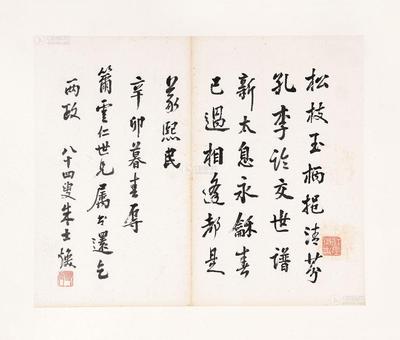 松枝玉柄挹清芬
孔李论交世谱
新太息永龢春
已过相逢都是
羲熙民
辛卯暮春为
箫云仁世兄属书还乞
两政 八十四叟朱士焕